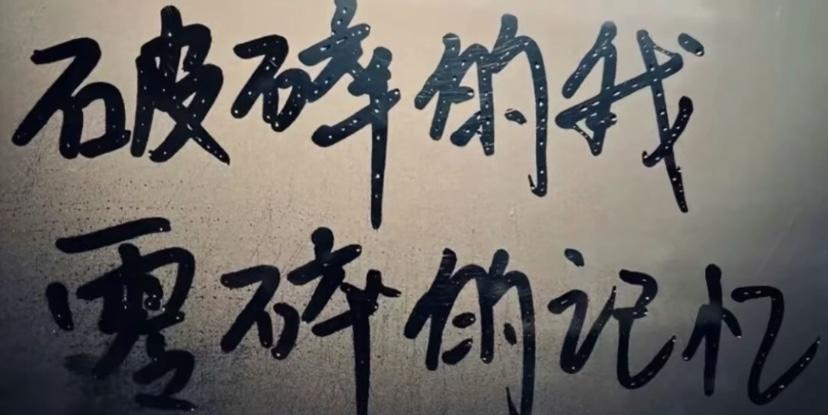 破碎的我
零碎的记忆